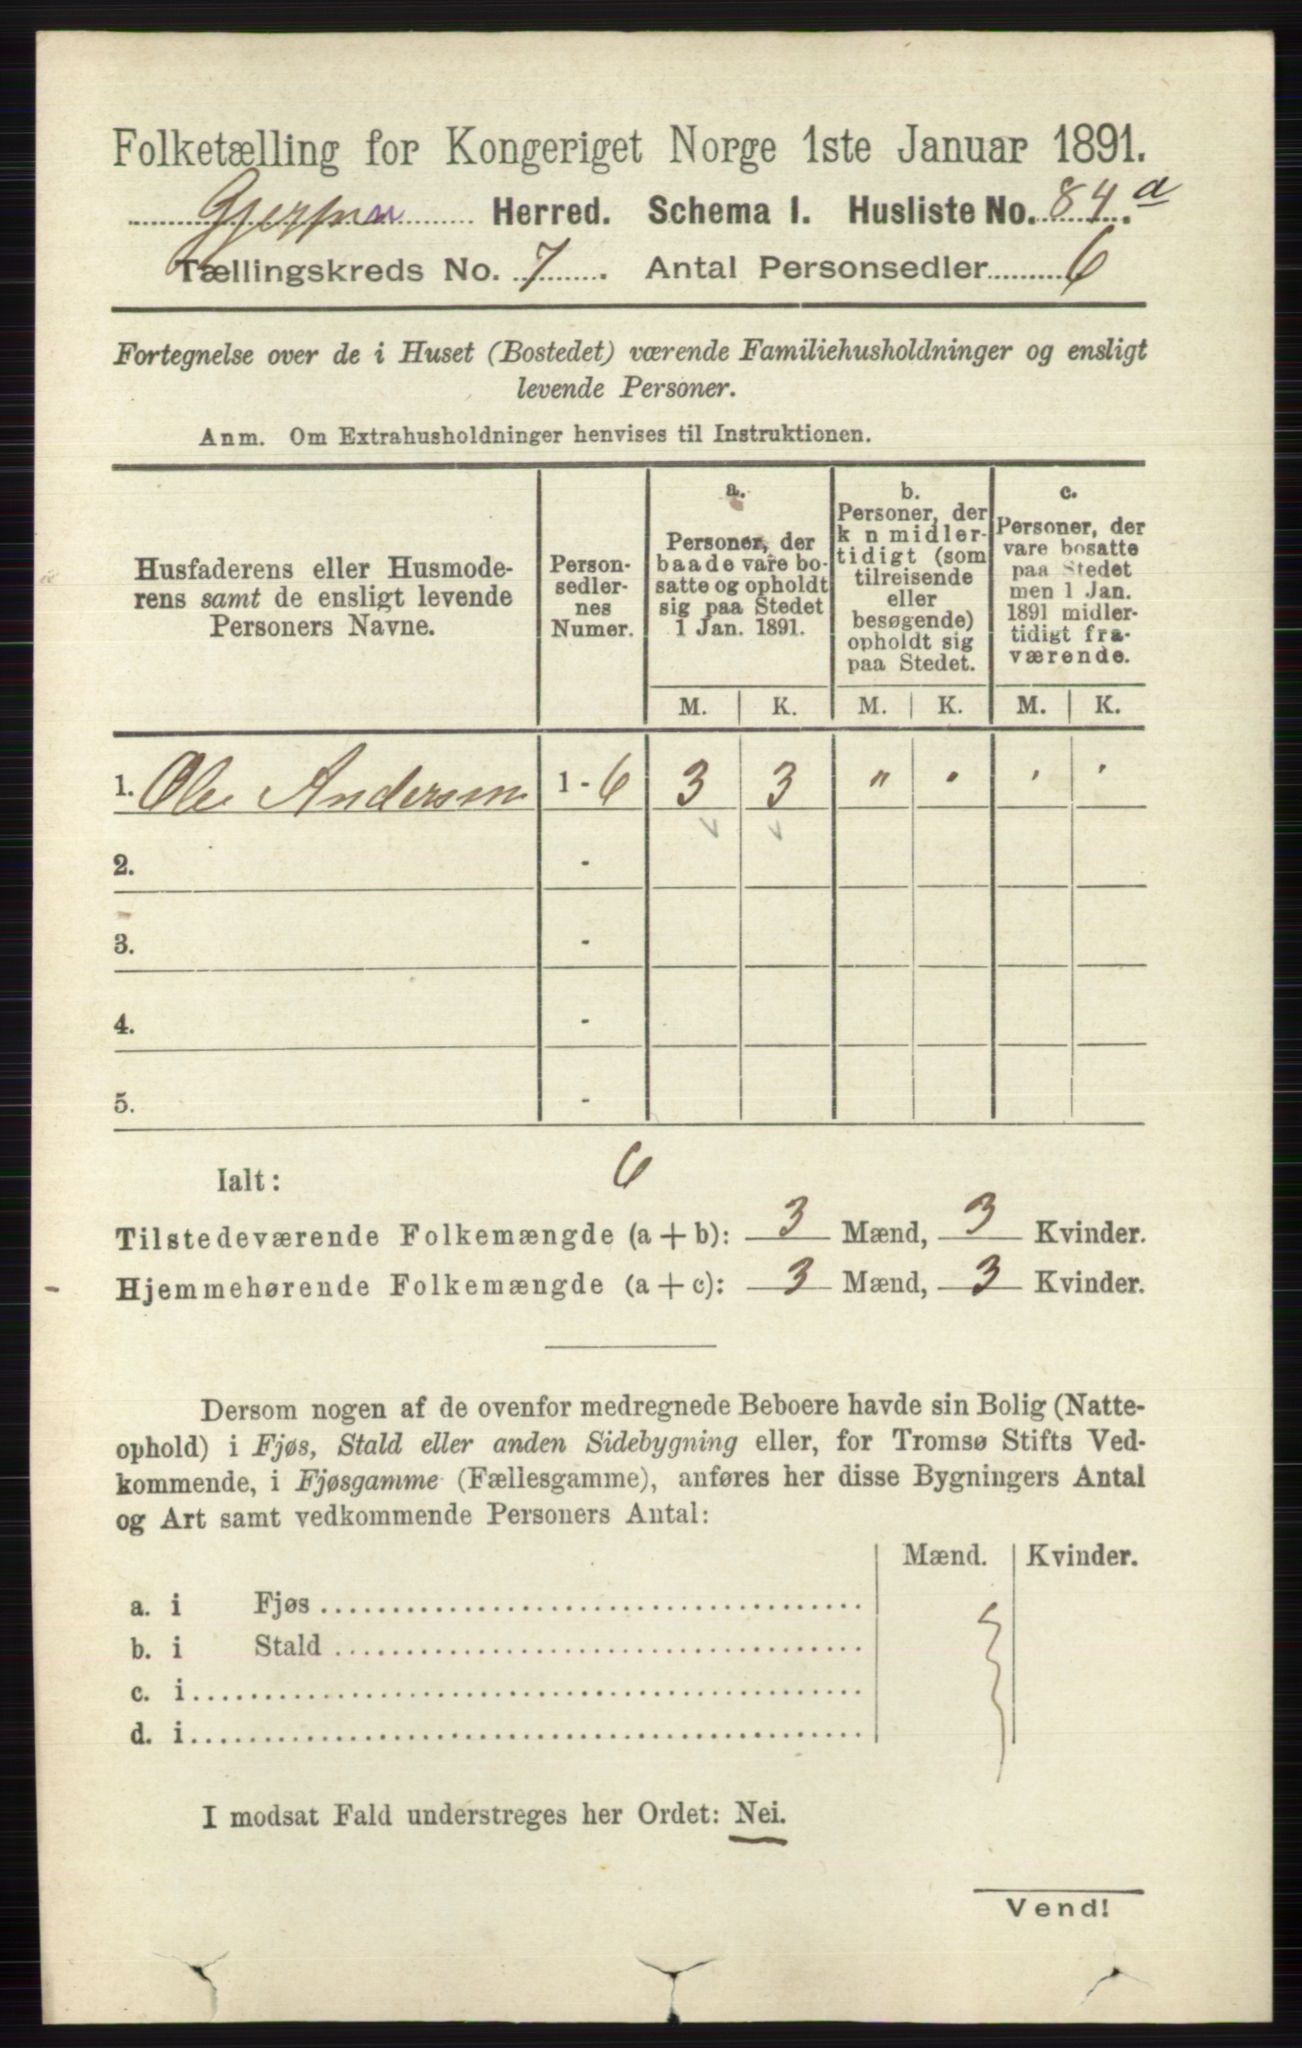 Folketælling for Kongeriget Norge 1ste Januar 1891.
Gjerpen Herred. Schema I. Husliste No. 84.a
Tællingskreds No. 7. Antal Personsedler 6
Fortegnelse over de i Huset (Bostedet) værende Familiehusholdninger og ensligt
levende Personer.
Anm. Om Extrahusholdninger henvises til Instruktionen.
Husfaderens eller Husmode-
rens samt de ensligt levende
Personers Navne.
Person-
sedler-
nes
Numer.
a.
Personer, der
baade vare bo-
satte og opholdt
sig paa Stedet
1 Jan. 1891.
b.
Personer, der
k n midler-
tidigt (som
tilreisende
eller
besøgende)
opholdt sig
paa Stedet.
c.
Personer, der
vare bosatte
paa Stedet
men 1 Jan.
1891 midler-
tidigt fra-
værende.
M. K. M. K. M. K.
1. Ole Andersen 1 - 6 3 3 " " " "
2. -
3. -
4. -
5. -
Ialt: 6
Tilstedeværende Folkemængde (a + b): 3 Mænd, 3 Kvinder.
Hjemmehørende Folkemængde (a + c): 3 Mænd, 3 Kvinder.
Dersom nogen af de ovenfor medregnede Beboere havde sin Bolig (Natte-
ophold) i Fjøs, Stald eller anden Sidebygning eller, for Tromsø Stifts Ved-
kommende, i Fjøsgamme (Fællesgamme), anføres her disse Bygningers Antal
og Art samt vedkommende Personers Antal:
Mænd. Kvinder.
a. i Fjøs
b. i Stald
c. i
d. i
I modsat Fald understreges her Ordet: Nei.
Vend!